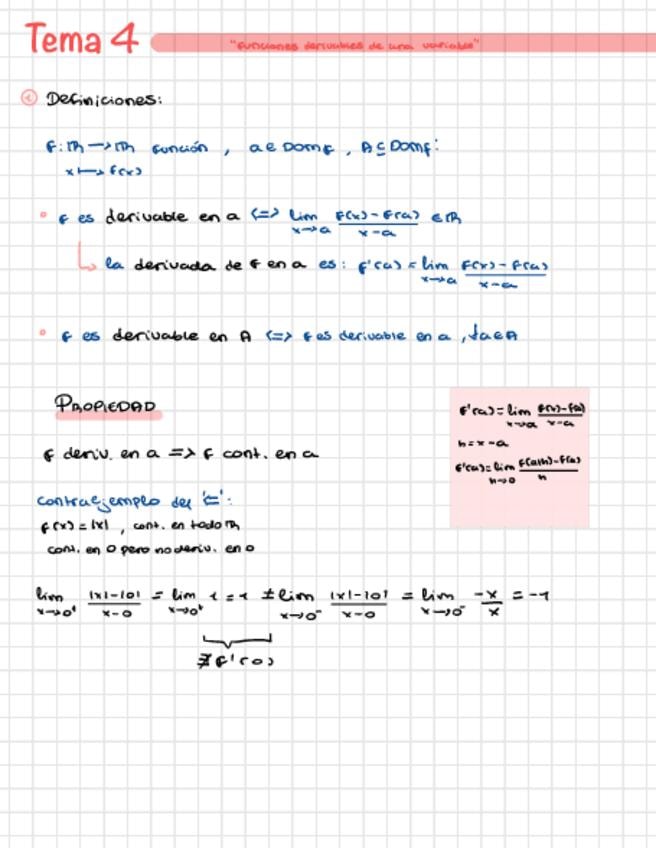 Tema 4
"funciones derivables de una variable"
① Definiciones:
f: ℝ → ℝ función, a ∈ Domf, A ⊆ Domf:
x ↦ f(x)
• f es derivable en a <=> lim x→a (f(x) - f(a))/(x - a) ∈ ℝ
↳ la derivada de f en a es: f'(a) = lim x→a (f(x) - f(a))/(x - a)
• f es derivable en A <=> f es derivable en a, ∀a∈A
PROPIEDAD
f deriv. en a => f cont. en a
contraejemplo del '⇐':
f(x) = |x|, cont. en todo ℝ
cont. en 0 pero no deriv. en 0
f'(a) = lim x→a (f(x) - f(a))/(x - a)
h = x - a
f'(a) = lim h→0 (f(a+h) - f(a))/h
lim x→0⁺ (|x| - |0|)/(x - 0) = lim x→0⁺ 1 = 1 ≠ lim x→0⁻ (|x| - |0|)/(x - 0) = lim x→0⁻ -x/x = -1
∄ f'(0)